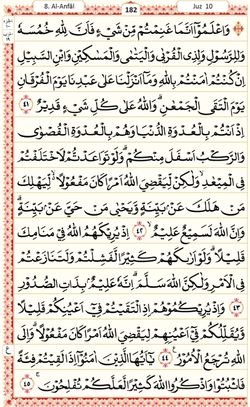 8. Al-Anfâl 182 Juz 10
وَاعْلَمُوْٓا اَنَّمَا غَنِمْتُمْ مِّنْ شَيْءٍ فَاَنَّ لِلّٰهِ خُمُسَهٗ
وَلِلرَّسُوْلِ وَلِذِى الْقُرْبٰى وَالْيَتٰمٰى وَالْمَسٰكِيْنِ وَابْنِ السَّبِيْلِ
اِنْ كُنْتُمْ اٰمَنْتُمْ بِاللّٰهِ وَمَآ اَنْزَلْنَا عَلٰى عَبْدِنَا يَوْمَ الْفُرْقَانِ
يَوْمَ الْتَقَى الْجَمْعٰنِ ۗ وَاللّٰهُ عَلٰى كُلِّ شَيْءٍ قَدِيْرٌ ٤١
اِذْ اَنْتُمْ بِالْعُدْوَةِ الدُّنْيَا وَهُمْ بِالْعُدْوَةِ الْقُصْوٰى
وَالرَّكْبُ اَسْفَلَ مِنْكُمْ ۗ وَلَوْ تَوَاعَدْتُّمْ لَاخْتَلَفْتُمْ
فِى الْمِيْعٰدِ ۙ وَلٰكِنْ لِّيَقْضِيَ اللّٰهُ اَمْرًا كَانَ مَفْعُوْلًا ۙ لِّيَهْلِكَ
مَنْ هَلَكَ عَنْۢ بَيِّنَةٍ وَّيَحْيٰى مَنْ حَيَّ عَنْۢ بَيِّنَةٍ ۗ
وَاِنَّ اللّٰهَ لَسَمِيْعٌ عَلِيْمٌ ۙ ٤٢ اِذْ يُرِيْكَهُمُ اللّٰهُ فِيْ مَنَامِكَ
قَلِيْلًا ۗ وَلَوْ اَرٰىكَهُمْ كَثِيْرًا لَّفَشِلْتُمْ وَلَتَنَازَعْتُمْ
فِى الْاَمْرِ وَلٰكِنَّ اللّٰهَ سَلَّمَ ۗ اِنَّهٗ عَلِيْمٌۢ بِذَاتِ الصُّدُوْرِ
٤٣ وَاِذْ يُرِيْكُمُوْهُمْ اِذِ الْتَقَيْتُمْ فِيْٓ اَعْيُنِكُمْ قَلِيْلًا
وَّيُقَلِّلُكُمْ فِيْٓ اَعْيُنِهِمْ لِيَقْضِيَ اللّٰهُ اَمْرًا كَانَ مَفْعُوْلًا ۗ وَاِلَى
اللّٰهِ تُرْجَعُ الْاُمُوْرُ ٤٤ يٰٓاَيُّهَا الَّذِيْنَ اٰمَنُوْٓا اِذَا لَقِيْتُمْ فِئَةً
فَاثْبُتُوْا وَاذْكُرُوا اللّٰهَ كَثِيْرًا لَّعَلَّكُمْ تُفْلِحُوْنَ ۚ ٤٥